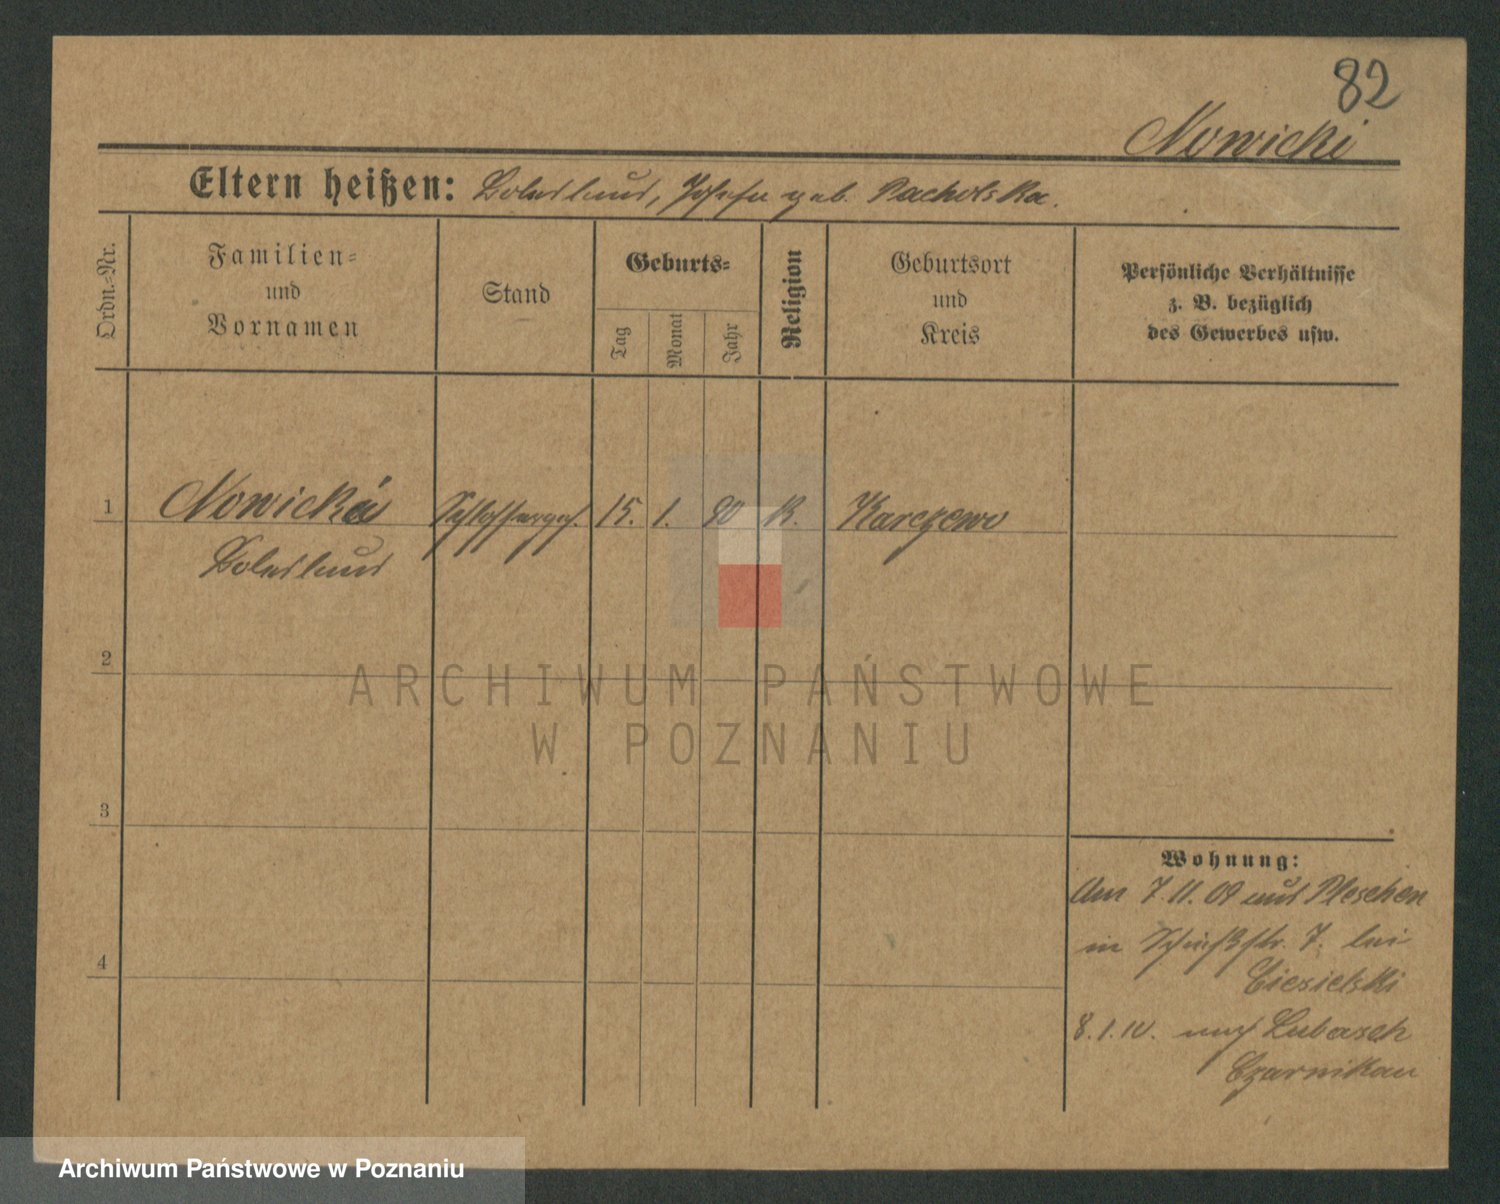 82
Nowicki
Eltern heißen: Boleslaus, Josefa geb. Pacholska.
Ordn.-Nr.
Familien-
und
Vornamen
Stand
Geburts-
Tag
Monat
Jahr
Religion
Geburtsort
und
Kreis
Persönliche Verhältnisse
z. B. bezüglich
des Gewerbes usw.
1 Nowicki Schlosserges. 15. 1. 90 K. Karczewo
Boleslaus
2
ARCHIWUM PAŃSTWOWE
W POZNANIU
3
Wohnung:
Am 7.11.09 aus Pleschen
in Schießstr. 7. bei
Ciesielski
4
8.1.10. nach Lubasch
Czarnikau
Archiwum Państwowe w Poznaniu